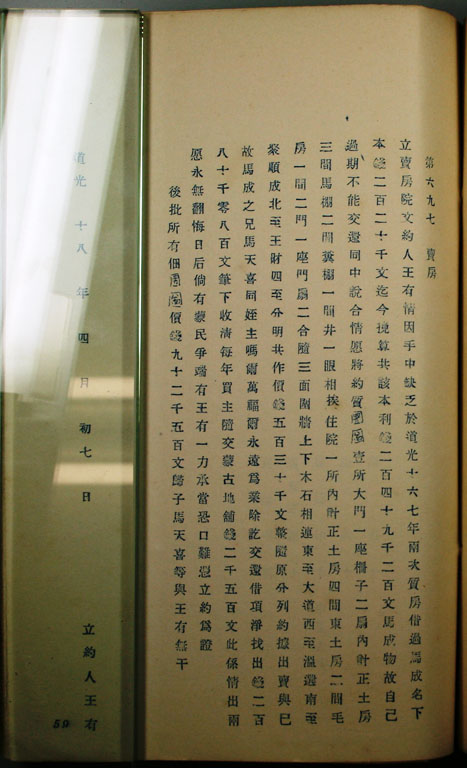 第六九七　賣房
立賣房院文約人王有情因手中缺乏於道光十六七年兩次質房借過馬成名下
本錢二百二十千文迄今揭算共該本利錢二百四十九千二百文馬成物故自己
過期不能交還同中說合情愿將約質園圐壹所大門一座柵子二扇內計正土房
三間馬棚二間糞棚一間井一眼相挨住院一所內計正土房四間東土房二間毛
房一間二門一座門扇二合隨三面圍牆上下木石相連東至大道西至溫還南至
梁順成北至王財四至分明共作價錢五百三十千文整隨原分列約據出賣與已
故馬成之兄馬天喜同姪主嗎爾萬福爾永遠爲業除訖交還借項淨找出錢二百
八十千零八百文筆下收清每年買主隨交蒙古地舖錢二千五百文此係情出兩
愿永無翻悔日后倘有蒙民爭端有王有一力承當恐口難憑立約爲證
後批所有佃圐圙價錢九十二千五百文歸于馬天喜等與王有無干
道光　十八年　四月　初七日
立約人王有
59